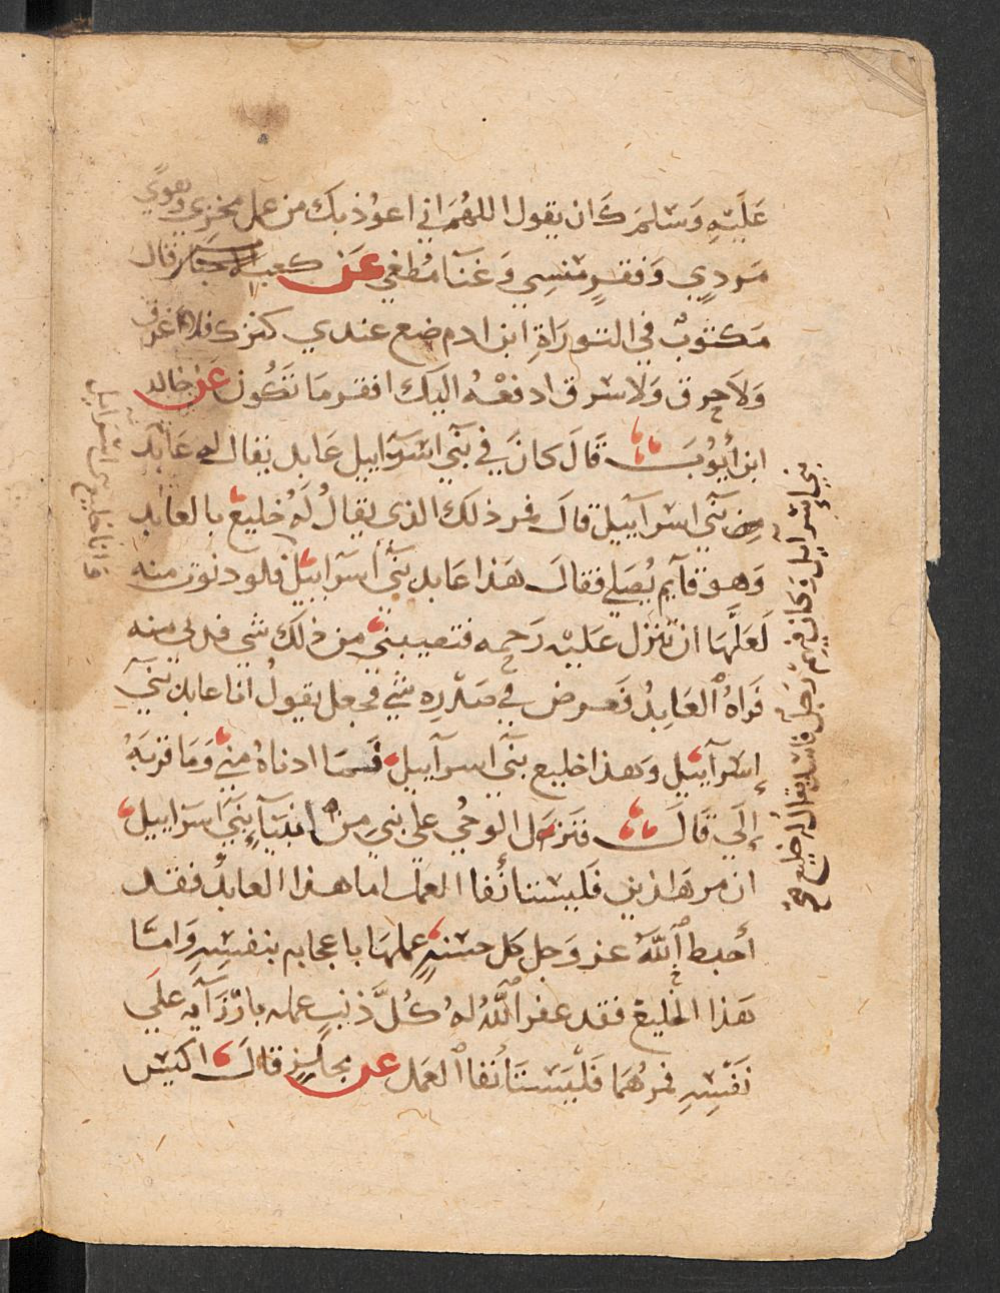 عَلَيْهِ وَسَلَمَ كَان يقول اللهُمَ اني اعوُذ بك من عمل مخزي وهوي
مَردِيٍ وَفقرٍ مُنسِي وَغنآ مُطغي عَن كعب الاحبَار قال
مَكتوبٌ في التورَاةِ ابن ادم ضع عندي كنزك فلا غرق
وَلاَ حرق وَلاَ سرق ادفعْهُ اليَك افقر مَا تكُون عَن خالد
ابن أيُوبَ قَالَ كانَ في بَنِي اسْرَاييل عَابد يقال له عَابد
بَنِي اسرَآييل قالَ فمر ذلك الذي يقالُ لَهُ خليع بالعابد
وَهو قآيم يُصَلي فقالَ هَذا عَابد بَنِي اسرَآييل فلو دنوت منه
لَعَلَّهَا ان تنزل عَليْه رَحمه فتصيبني من ذلك شي فدني منه
فَرَاهُ العَابِدُ فَعَرض في صَدْرِه شي فجعل يقولُ انا عابد بني
إسْرَآييل وَهذا خليع بَنِي اسرآييل فَمَا ادناهُ مني وَمَا قربَهُ
إلَي قَالَ فنزل الوحي علي نبيِ من انبيَآءِ بَنِي اسرَاييل
ان مر هَاذين فَليستأنفا العمل اما هذا العابدُ فقد
أحبط اللَّهُ عز وَجل كل حسنهٍ عملهَا باعجابه بنفسِهِ وَامَّا
هَذا الخليع فقد غفر اللَّهُ لهُ كُلَّ ذنبٍ عمله بازْرَآيه علَي
نفْسِهِ فمرهُمَا فَلْيَستَأنفا العمَل عن مجاهِدٍ قالَ اكيَس
بَنِي إسْرآييل وَكان فيهم رَجل فاسد يقال لهُ خليع
وَانا خليع بني اسرَاييل